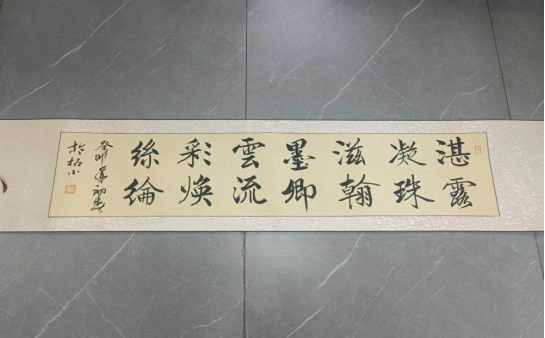 湛露
凝珠
滋翰
墨卿
雲流
彩煥
絲綸
癸卯年初春